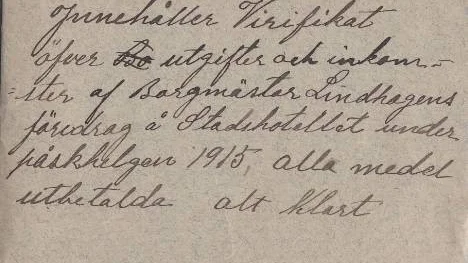 Innehåller Virifikat
öfver utgifter och inkom=
=ster af Borgmästar Lindhagens
föredrag å Stadshotellet under
påskhelgen 1915, alla medel
utbetalda alt klart